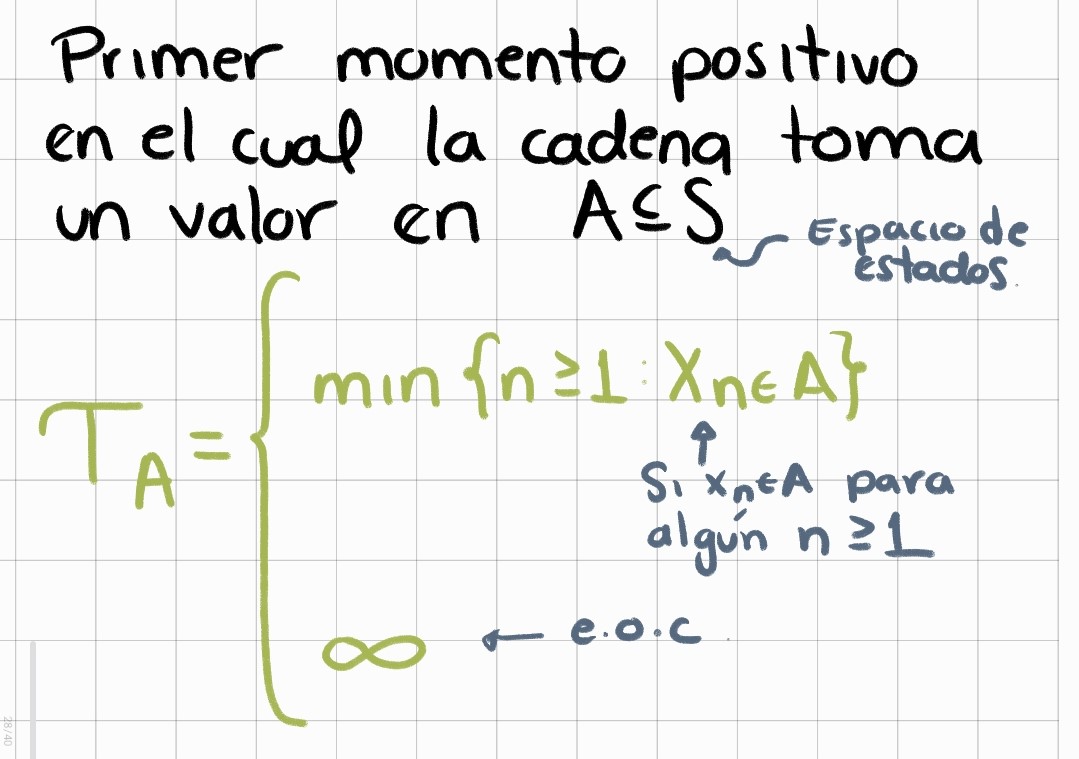 Primer momento positivo
en el cual la cadena toma
un valor en A ⊆ S
Espacio de
estados.
T_A = { min {n ≥ 1 : X_n ∈ A}
Si x_n ∈ A para
algún n ≥ 1
∞ ← e.o.c.
28/40